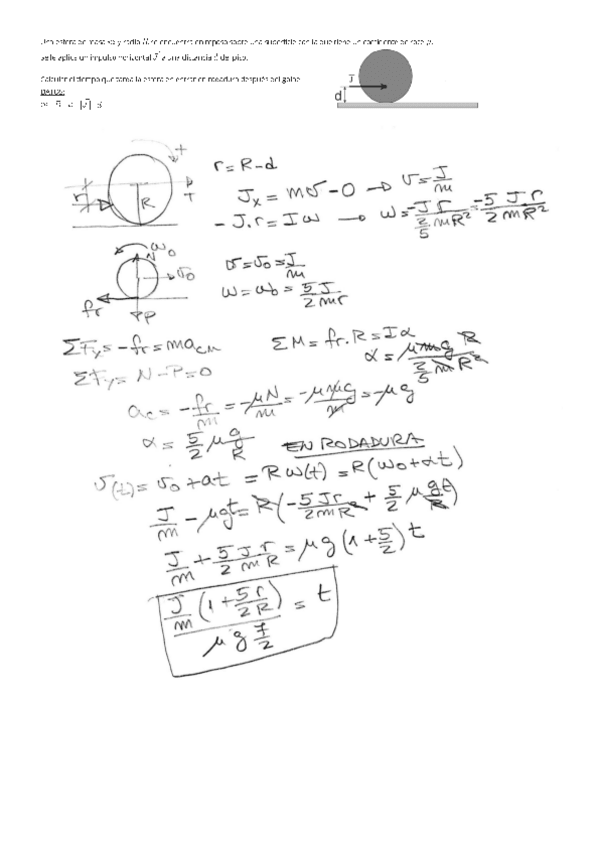 Una esfera de masa m y radio R se encuentra en reposo sobre una superficie con la que tiene un coeficiente de roce μ.
Se le aplica un impulso horizontal J a una distancia d del piso.
Calcular el tiempo que tarda la esfera en entrar en rodadura después del golpe
DATOS:
J
d
r
R
+
+
r = R - d
Jx = mv - 0 → v = J/m
- J.r = I ω → ω = -J r / (2/5 m R²) = -5 J.r / 2 m R²
ω0
N
v0
fr
P
v = v0 = J/m
ω = ω0 = 5 J / 2 m r
ΣFx = -fr = m aCM
ΣM = fr.R = I α
ΣFy = N - P = 0
α = μ m g R / (2/5 m R²)
ac = -fr/m = -μN/m = -μ m g/m = -μ g
α = 5/2 μ g/R
EN RODADURA
v(t) = v0 + at = R ω(t) = R(ω0 + αt)
J/m - μgt = R(-5 J r / 2 m R² + 5/2 μ g t/R)
J/m + 5/2 J.r / m R = μ g (1 + 5/2) t
J/m (1 + 5 r / 2 R) / (μ g 7/2) = t